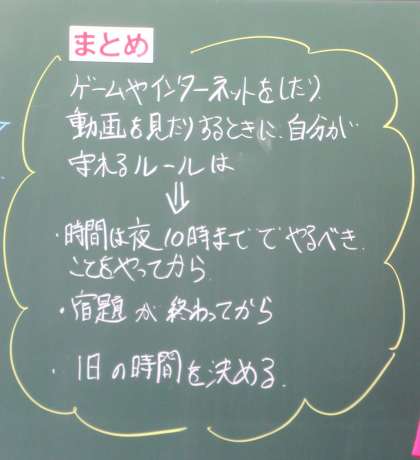 まとめ
ゲームやインターネットをしたり、
動画を見たりするときに、自分が
守れるルールは
⇓
・時間は夜10時まででやるべき
ことをやってから。
・宿題が終わってから
・1日の時間を決める。